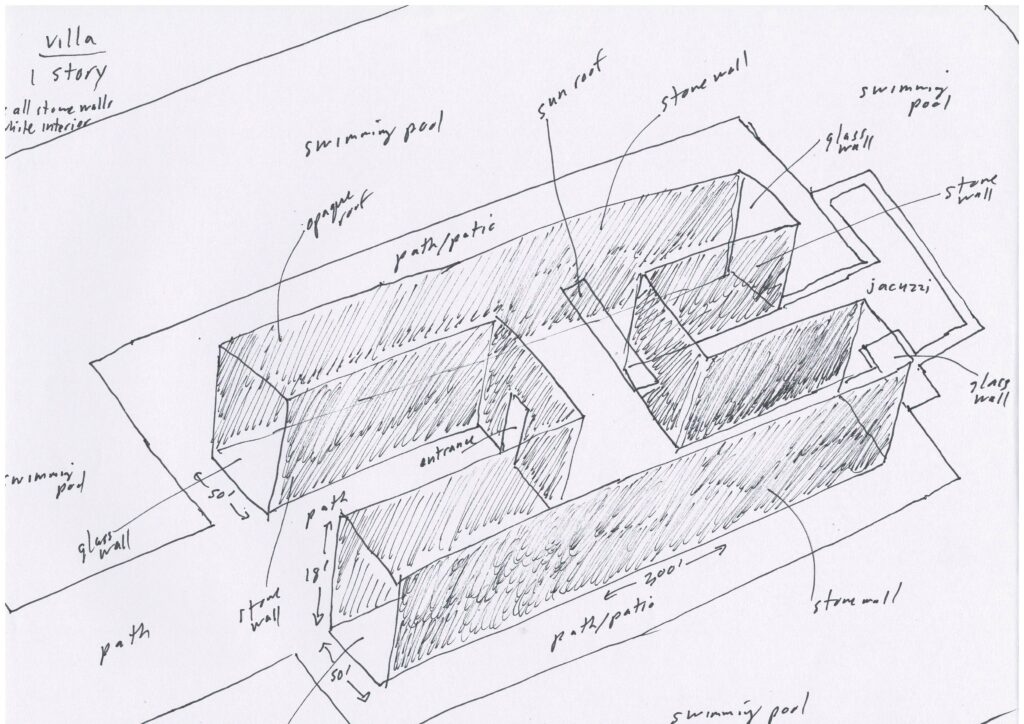 villa
1 story
all stone walls
white interior
swimming pool
sun roof
stone wall
swimming
pool
glass
wall
stone
wall
opaque
roof
path/patio
jacuzzi
glass
wall
entrance
swimming
pool
50'
glass
wall
path
18'
stone
wall
path
300'
stone wall
path/patio
50'
swimming pool